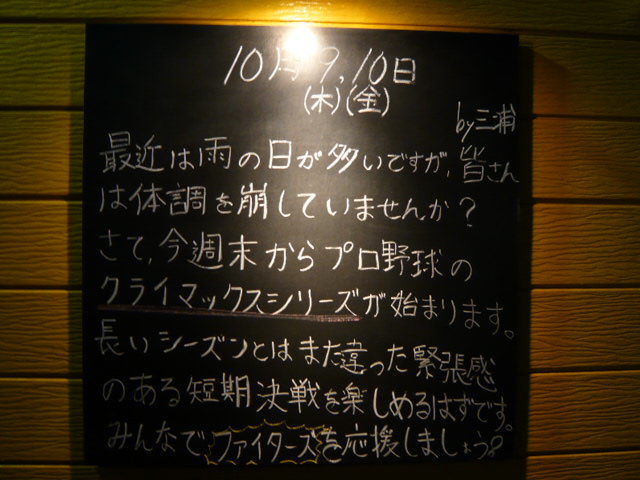 10月9,10日
(木)(金)
by三浦
最近は雨の日が多いですが,皆さん
は体調を崩していませんか?
さて,今週末からプロ野球の
クライマックスシリーズが始まります。
長いシーズンとはまた違った緊張感
のある短期決戦を楽しめるはずです。
みんなで,ファイターズを応援しましょう。